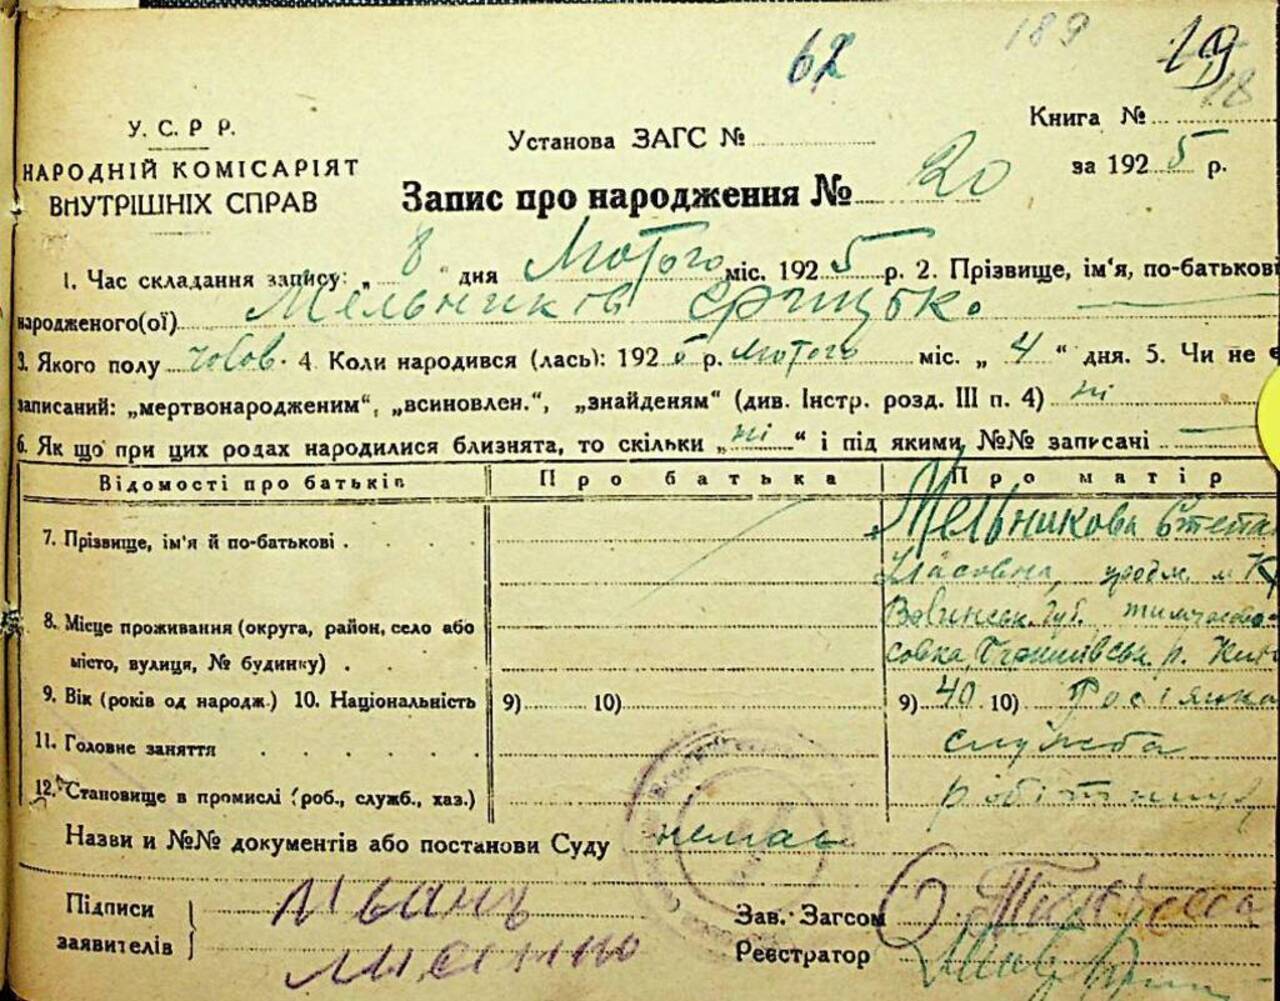 62 189 19 18
У. С. Р Р.
НАРОДНІЙ КОМІСАРІЯТ
ВНУТРІШНІХ СПРАВ
Установа ЗАГС №
Книга №
за 1925 р.
Запис про народження № 20
1. Час складання запису: „ 8 " дня Лютого міс. 1925 р. 2. Прізвище, ім'я, по-батькові
народженого(ої) Мельників
3. Якого полу чолов. 4. Коли народився (лась): 1925 р. лютого міс. „ 4 " дня. 5. Чи не є
записаний: „мертвонародженим", „всиновлен.", „знайденям" (див. Інстр. розд. III п. 4) ні
6. Як що при цих родах народилися близнята, то скільки „ ні " і під якими №№ записані
Відомості про батьків Про батька Про матір
7. Прізвище, ім'я й по-батькові . Мельникова Степа
уродж. м
8. Місце проживання (округа, район, село або Волинськ. губ.
місто, вулиця, № будинку) . р.
9. Вік (років од народж.) 10. Національність 9) 10) 9) 40 10) Росіянка
11. Головне заняття служба
12. Становище в промислі (роб., служб., хаз.) робітниця
Назви и №№ документів або постанови Суду немає
Підписи
заявителів
Зав. Загсом
Реєстратор